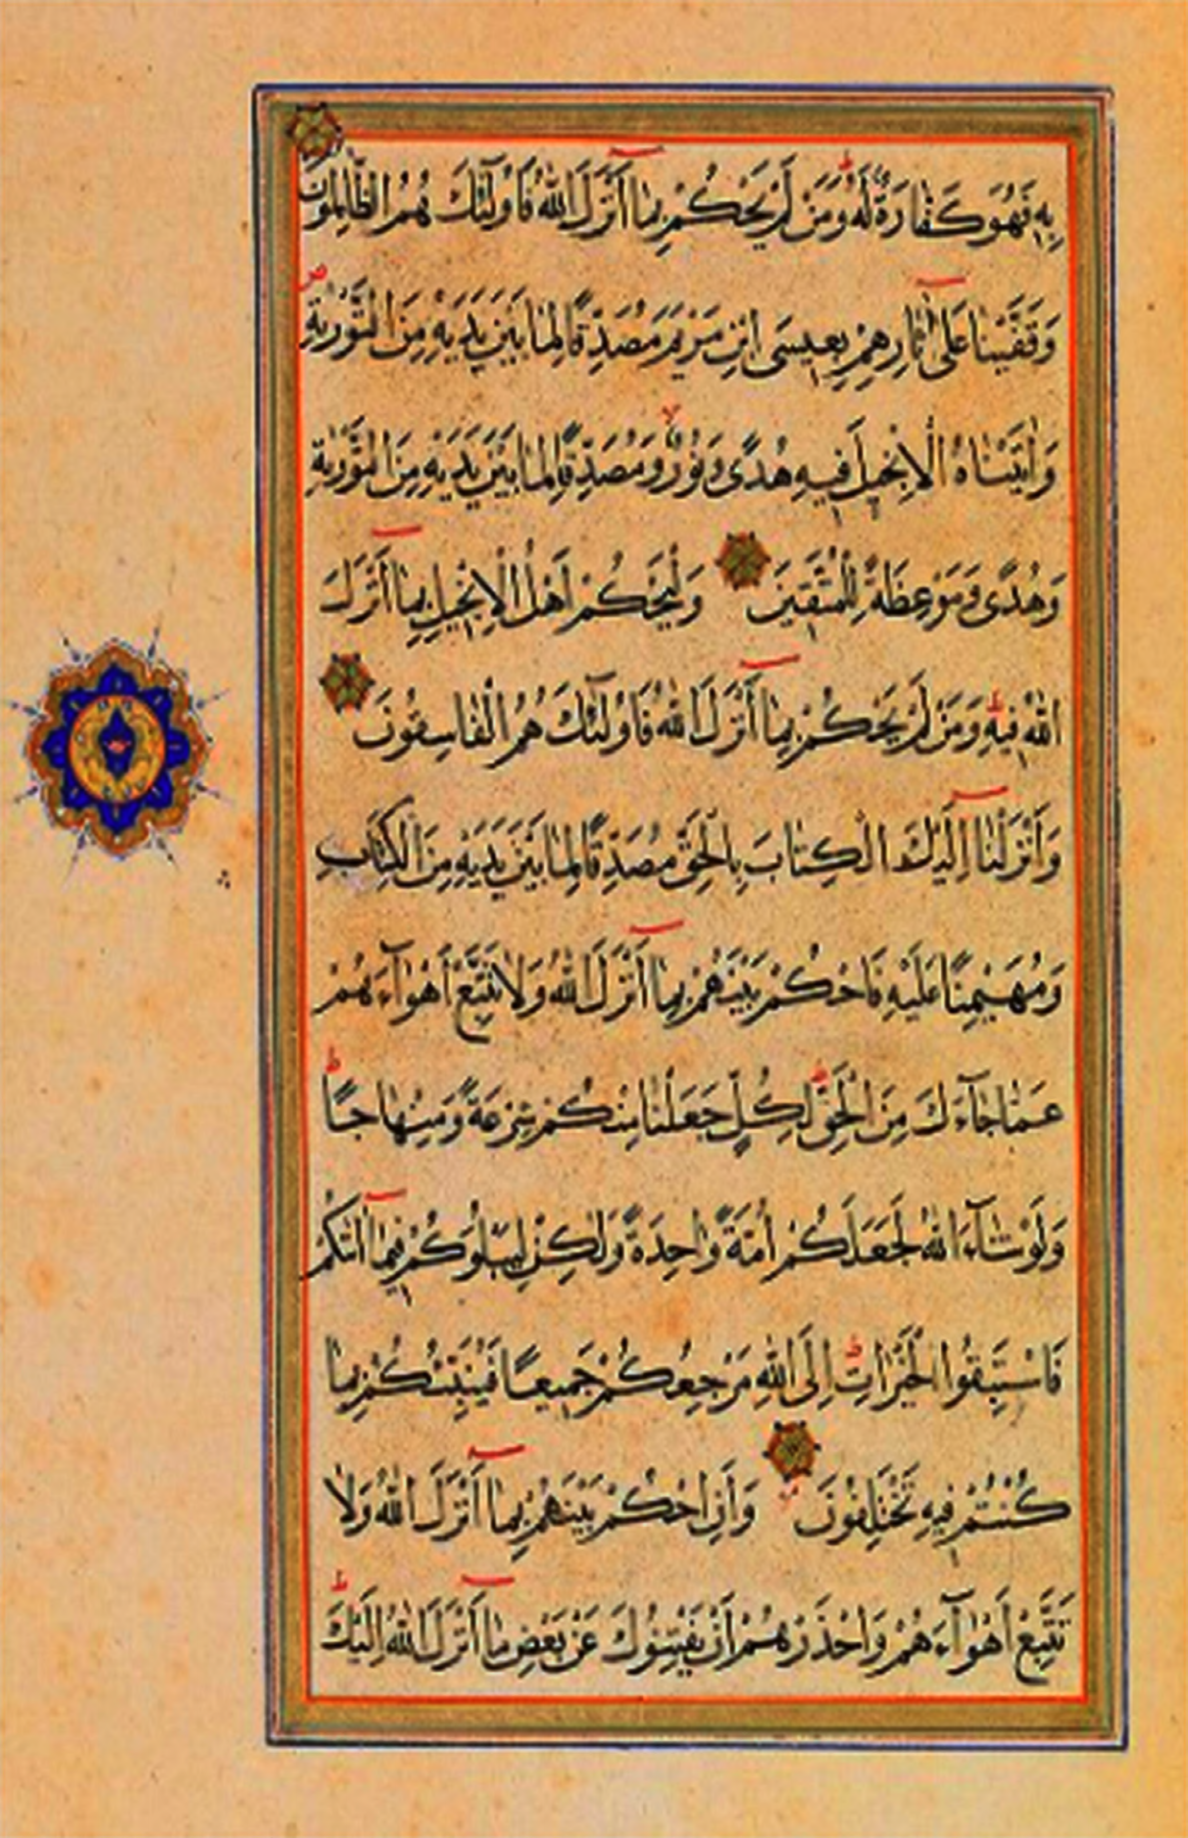 بِهِ فَهُوَ كَفَّارَةٌ لَهُ وَمَنْ لَمْ يَحْكُمْ بِمَا أَنْزَلَ اللهُ فَاُولٰٓئِكَ هُمُ الظَّالِمُونَ
وَقَفَّيْنَا عَلٰى اٰثَارِهِمْ بِعِيسَى ابْنِ مَرْيَمَ مُصَدِّقًا لِمَا بَيْنَ يَدَيْهِ مِنَ التَّوْرٰيةِ
وَاٰتَيْنَاهُ الْاِنْجِيلَ فِيهِ هُدًى وَنُورٌ وَمُصَدِّقًا لِمَا بَيْنَ يَدَيْهِ مِنَ التَّوْرٰيةِ
وَهُدًى وَمَوْعِظَةً لِلْمُتَّقِينَ وَلْيَحْكُمْ اَهْلُ الْاِنْجِيلِ بِمَا اَنْزَلَ
اللهُ فِيهِ وَمَنْ لَمْ يَحْكُمْ بِمَا أَنْزَلَ اللهُ فَاُولٰٓئِكَ هُمُ الْفَاسِقُونَ
وَاَنْزَلْنَا اِلَيْكَ الْكِتَابَ بِالْحَقِّ مُصَدِّقًا لِمَا بَيْنَ يَدَيْهِ مِنَ الْكِتَابِ
وَمُهَيْمِنًا عَلَيْهِ فَاحْكُمْ بَيْنَهُمْ بِمَا اَنْزَلَ اللهُ وَلَا تَتَّبِعْ اَهْوَآءَهُمْ
عَمَّا جَآءَكَ مِنَ الْحَقِّ لِكُلٍّ جَعَلْنَا مِنْكُمْ شِرْعَةً وَمِنْهَاجًا
وَلَوْ شَآءَ اللهُ لَجَعَلَكُمْ اُمَّةً وَاحِدَةً وَلٰكِنْ لِيَبْلُوَكُمْ فِيمَا اٰتٰيكُمْ
فَاسْتَبِقُوا الْخَيْرَاتِ اِلَى اللهِ مَرْجِعُكُمْ جَمِيعًا فَيُنَبِّئُكُمْ بِمَا
كُنْتُمْ فِيهِ تَخْتَلِفُونَ وَأَنِ احْكُمْ بَيْنَهُمْ بِمَا أَنْزَلَ اللهُ وَلَا
تَتَّبِعْ اَهْوَآءَهُمْ وَاحْذَرْهُمْ اَنْ يَفْتِنُوكَ عَنْ بَعْضِ مَا اَنْزَلَ اللهُ اِلَيْكَ